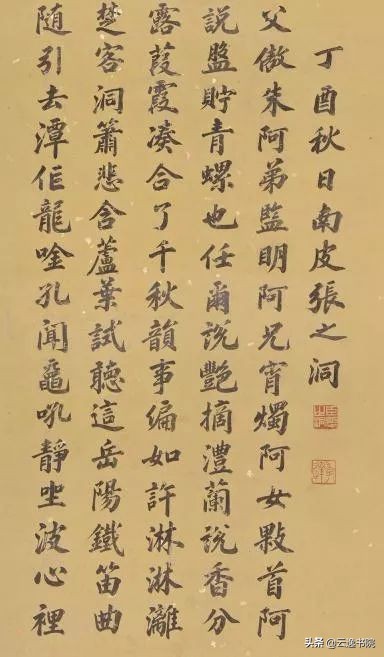 丁酉秋日南皮張之洞
父傲朱阿弟監明阿兄宵燭阿女敤首阿
說盬貯青螺也任爾說艷摘澧蘭說香分
露葭霞湊合了千秋韻事編如許淋淋灕
楚客洞簫悲含蘆葉試聽這岳陽鐵笛曲
随引去潭佢龍唫孔聞黿吼靜坐波心裡
头条 @云逸书院